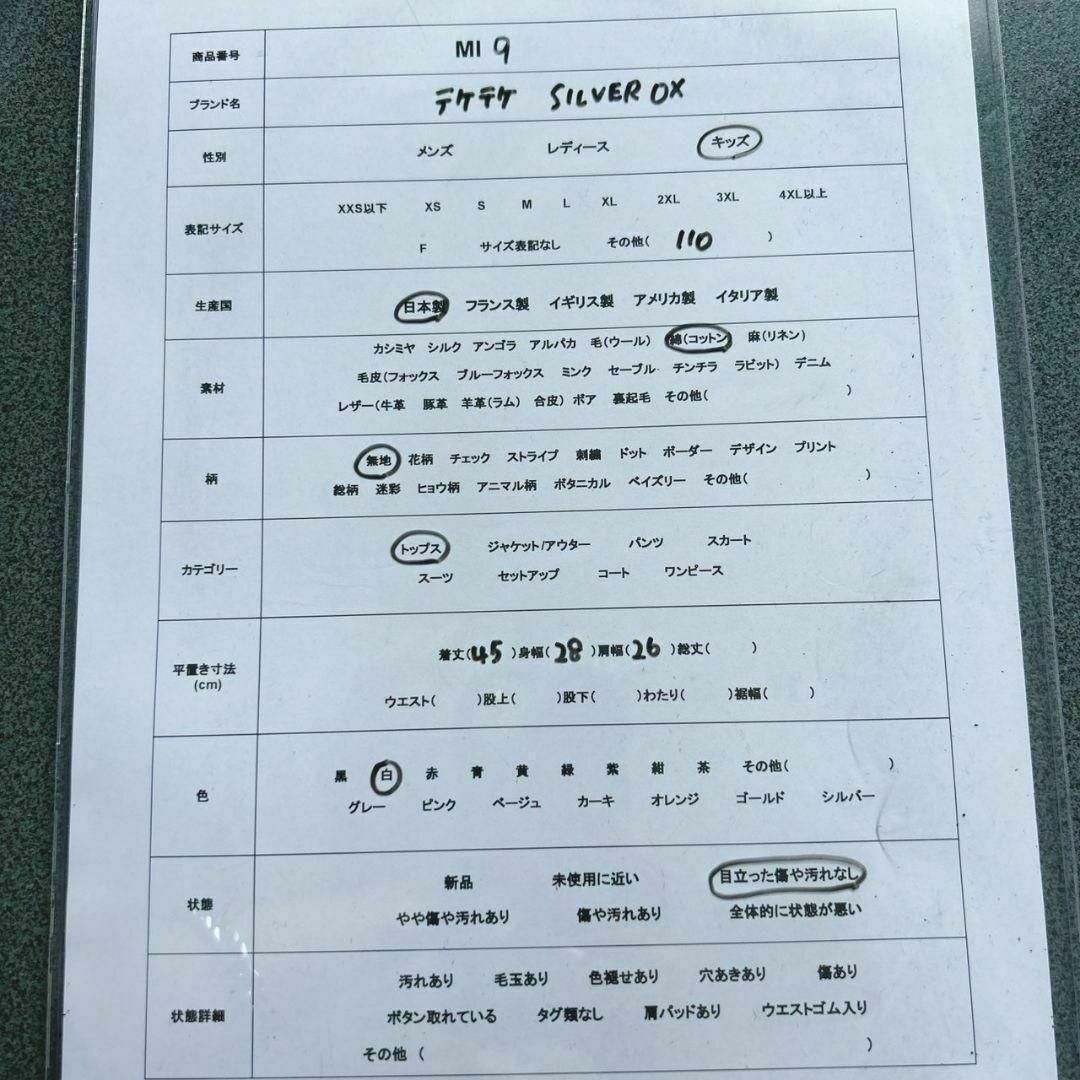 商品番号 MI 9
ブランド名 テケテケ SILVER OX
性別 メンズ レディース キッズ
XXS以下 XS S M L XL 2XL 3XL 4XL以上
表記サイズ
F サイズ表記なし その他( 110 )
生産国 日本製 フランス製 イギリス製 アメリカ製 イタリア製
カシミヤ シルク アンゴラ アルパカ 毛(ウール) 綿(コットン) 麻(リネン)
毛皮(フォックス ブルーフォックス ミンク セーブル チンチラ ラビット) デニム
素材
レザー(牛革 豚革 羊革(ラム) 合皮) ボア 裏起毛 その他( )
無地 花柄 チェック ストライプ 刺繍 ドット ボーダー デザイン プリント
柄
総柄 迷彩 ヒョウ柄 アニマル柄 ボタニカル ペイズリー その他( )
トップス ジャケット/アウター パンツ スカート
カテゴリー
スーツ セットアップ コート ワンピース
着丈(45 )身幅( 28 )肩幅( 26 )総丈( )
平置き寸法
(cm)
ウエスト( )股上( )股下( )わたり( )裾幅( )
黒 白 赤 青 黄 緑 紫 紺 茶 その他( )
色
グレー ピンク ベージュ カーキ オレンジ ゴールド シルバー
新品 未使用に近い 目立った傷や汚れなし
状態
やや傷や汚れあり 傷や汚れあり 全体的に状態が悪い
汚れあり 毛玉あり 色褪せあり 穴あきあり 傷あり
状態詳細 ボタン取れている タグ類なし 肩パッドあり ウエストゴム入り
その他 ( )